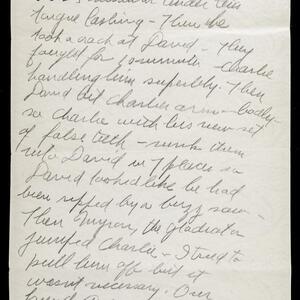 under this
tongue lashing - Then he
took a crack at David - They
fought for 20 minutes - Charlie
handling him superbly. Then
David bit Charlie's arm - badly -
so Charlie with his new set
of false teeth - sunk them
into David in 7 places so
David looked like he had
been ripped by a buzz saw -
Then Myron, the gladiator
jumped Charlie - I tried to
pull him off but it
wasn't necessary. Our